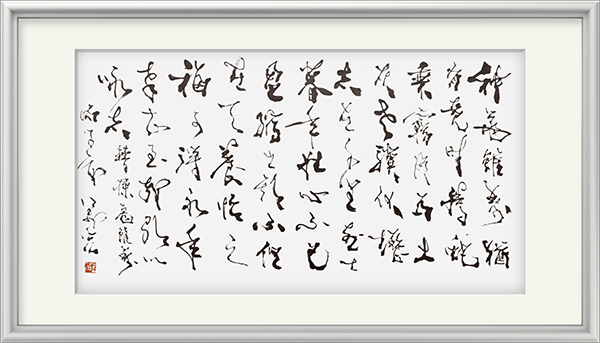 神龜雖壽猶
有竟時騰蛇
乘霧終為土
灰老驥伏櫪
志在千里烈士
暮年壯心不已
盈縮之期不但
在天養怡之
福可得永年
幸甚至哉歌以
詠志 曹操龜雖壽